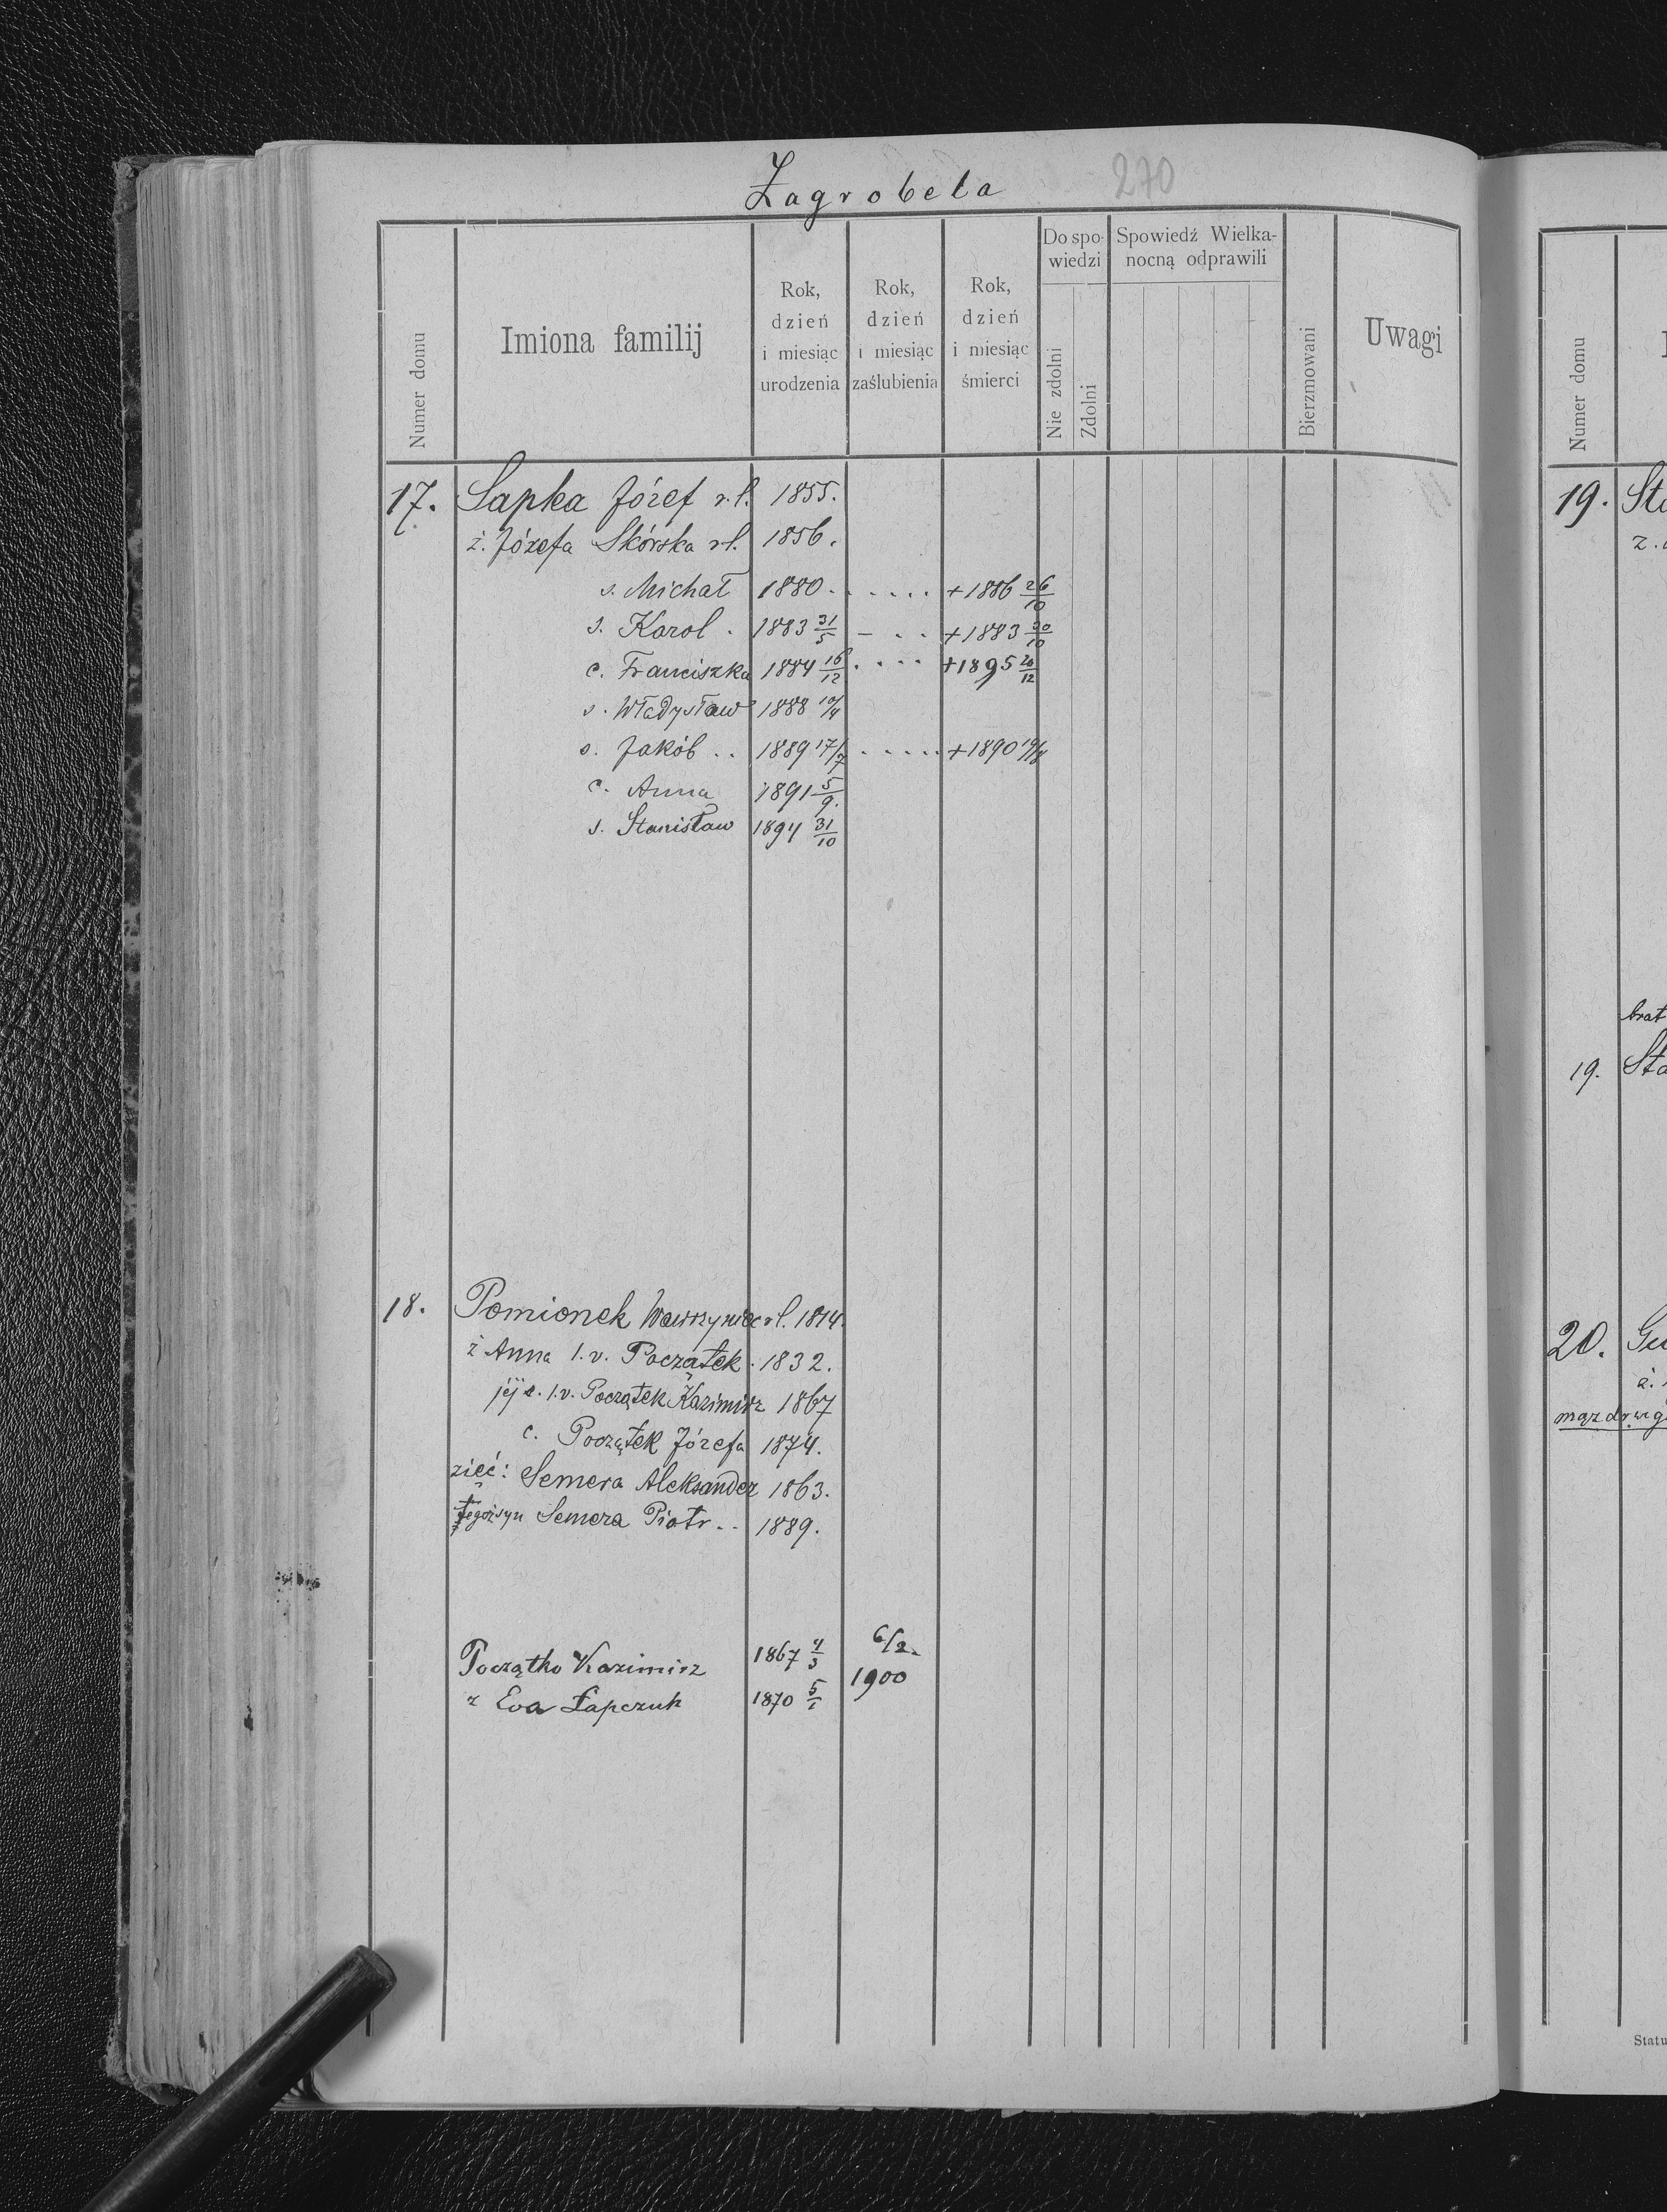 Zagrobela 270
Numer domu
Imiona familij
Rok, dzień i miesiąc urodzenia
Rok, dzień i miesiąc zaślubienia
Rok, dzień i miesiąc śmierci
Do spowiedzi
Nie zdolni
Zdolni
Spowiedź Wielkanocną odprawili
Bierzmowani
Uwagi
17. Sapka Józef r.l. 1855.
ż. Józefa Skórska r.l. 1856.
s. Michał 1880. . . . . . +1886 26/10
s. Karol . 1883 31/5 - . . +1883 30/10
c. Franciszka 1884 16/12 . . . . +1895 26/12
s. Władysław 1888 10/4
s. Jakób . . 1889 17/7 . . . . . +1890 19/8
c. Anna 1891 5/9.
s. Stanisław 1894 31/10
18. Pomionek Wawrzyniec r.l. 1814.
ż Anna 1.v. Początek . 1832.
jéj s. 1.v. Początek Kazimirz 1867
c. Początek Józefa 1874.
zięć: Semera Aleksander 1863.
tegoż syn Semera Piotr . . 1889.
Początko Kazimirz 1867 4/3 6/2.
ż Eva Łapczuk 1870 5/1 1900
Numer domu
19. Sta
ż.
brat
19. Sta
20. Gu
ż.
mąż drugi
Statu